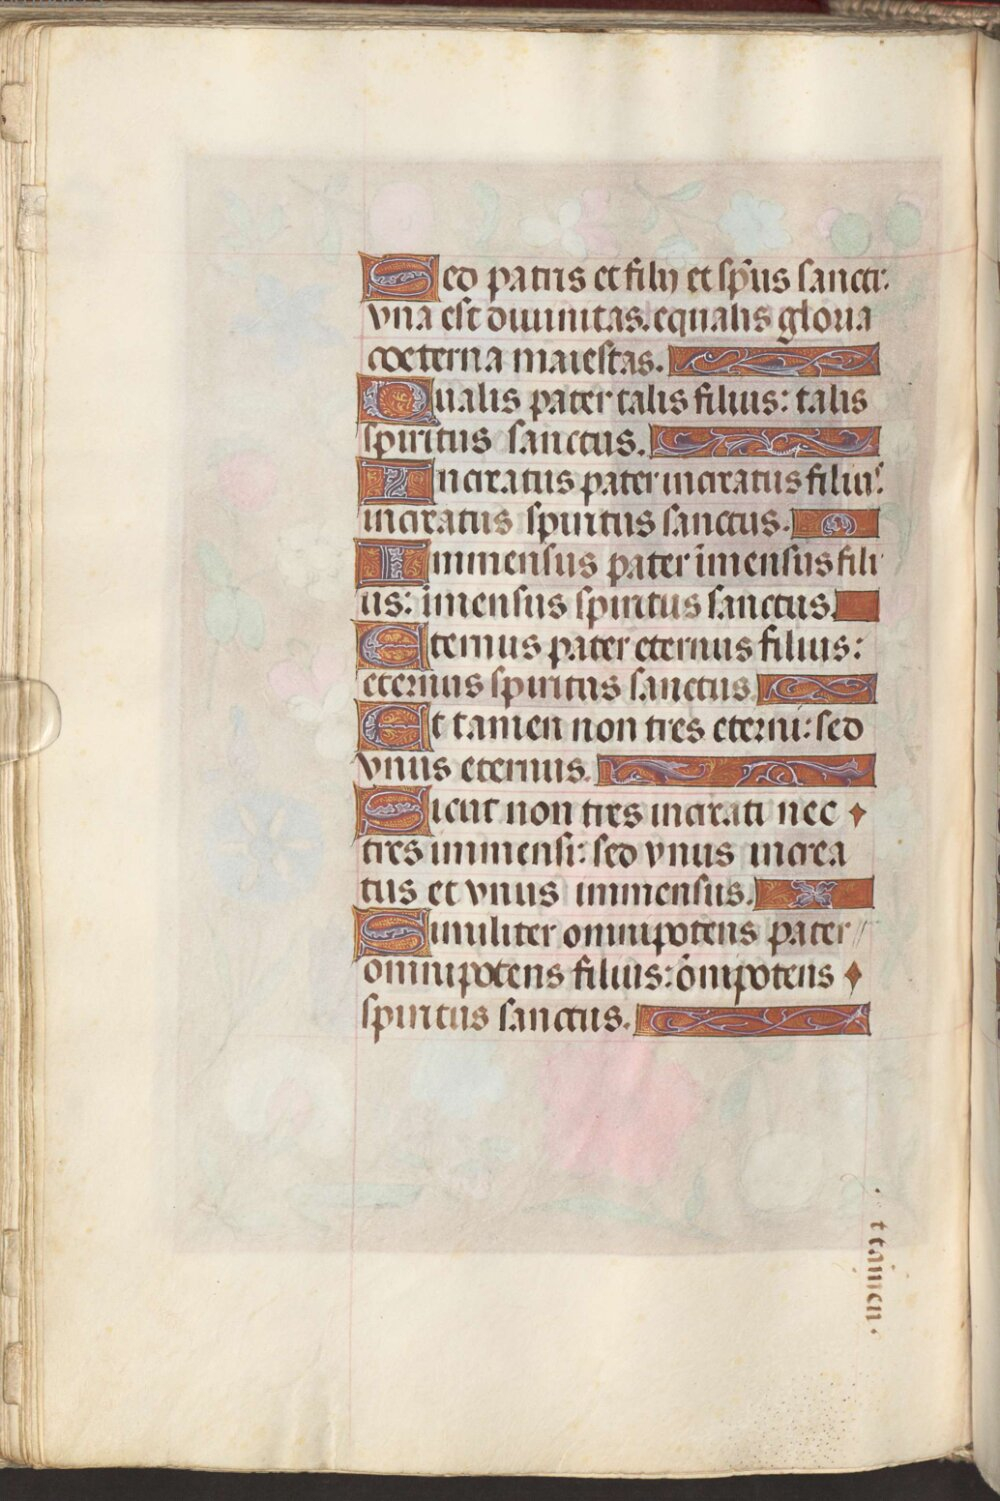 Sed patris et filij et sp̄us sancti:
vna est diuinitas. equalis gloria
coeterna maiestas.
Qualis pater talis filius: talis
spiritus sanctus.
Increatus pater increatus filius:
increatus spiritus sanctus.
Immensus pater īmensus fili
us: īmensus spiritus sanctus.
Eternus pater eternus filius:
eternus spiritus sanctus.
Et tamen non tres eterni: sed
vnus eternus.
Sicut non tres increati nec
tres immensi: sed vnus increa
tus et vnus immensus.
Similiter omnipotens pater
omnipotens filius: ōmipotens
spiritus sanctus.
t tamen.